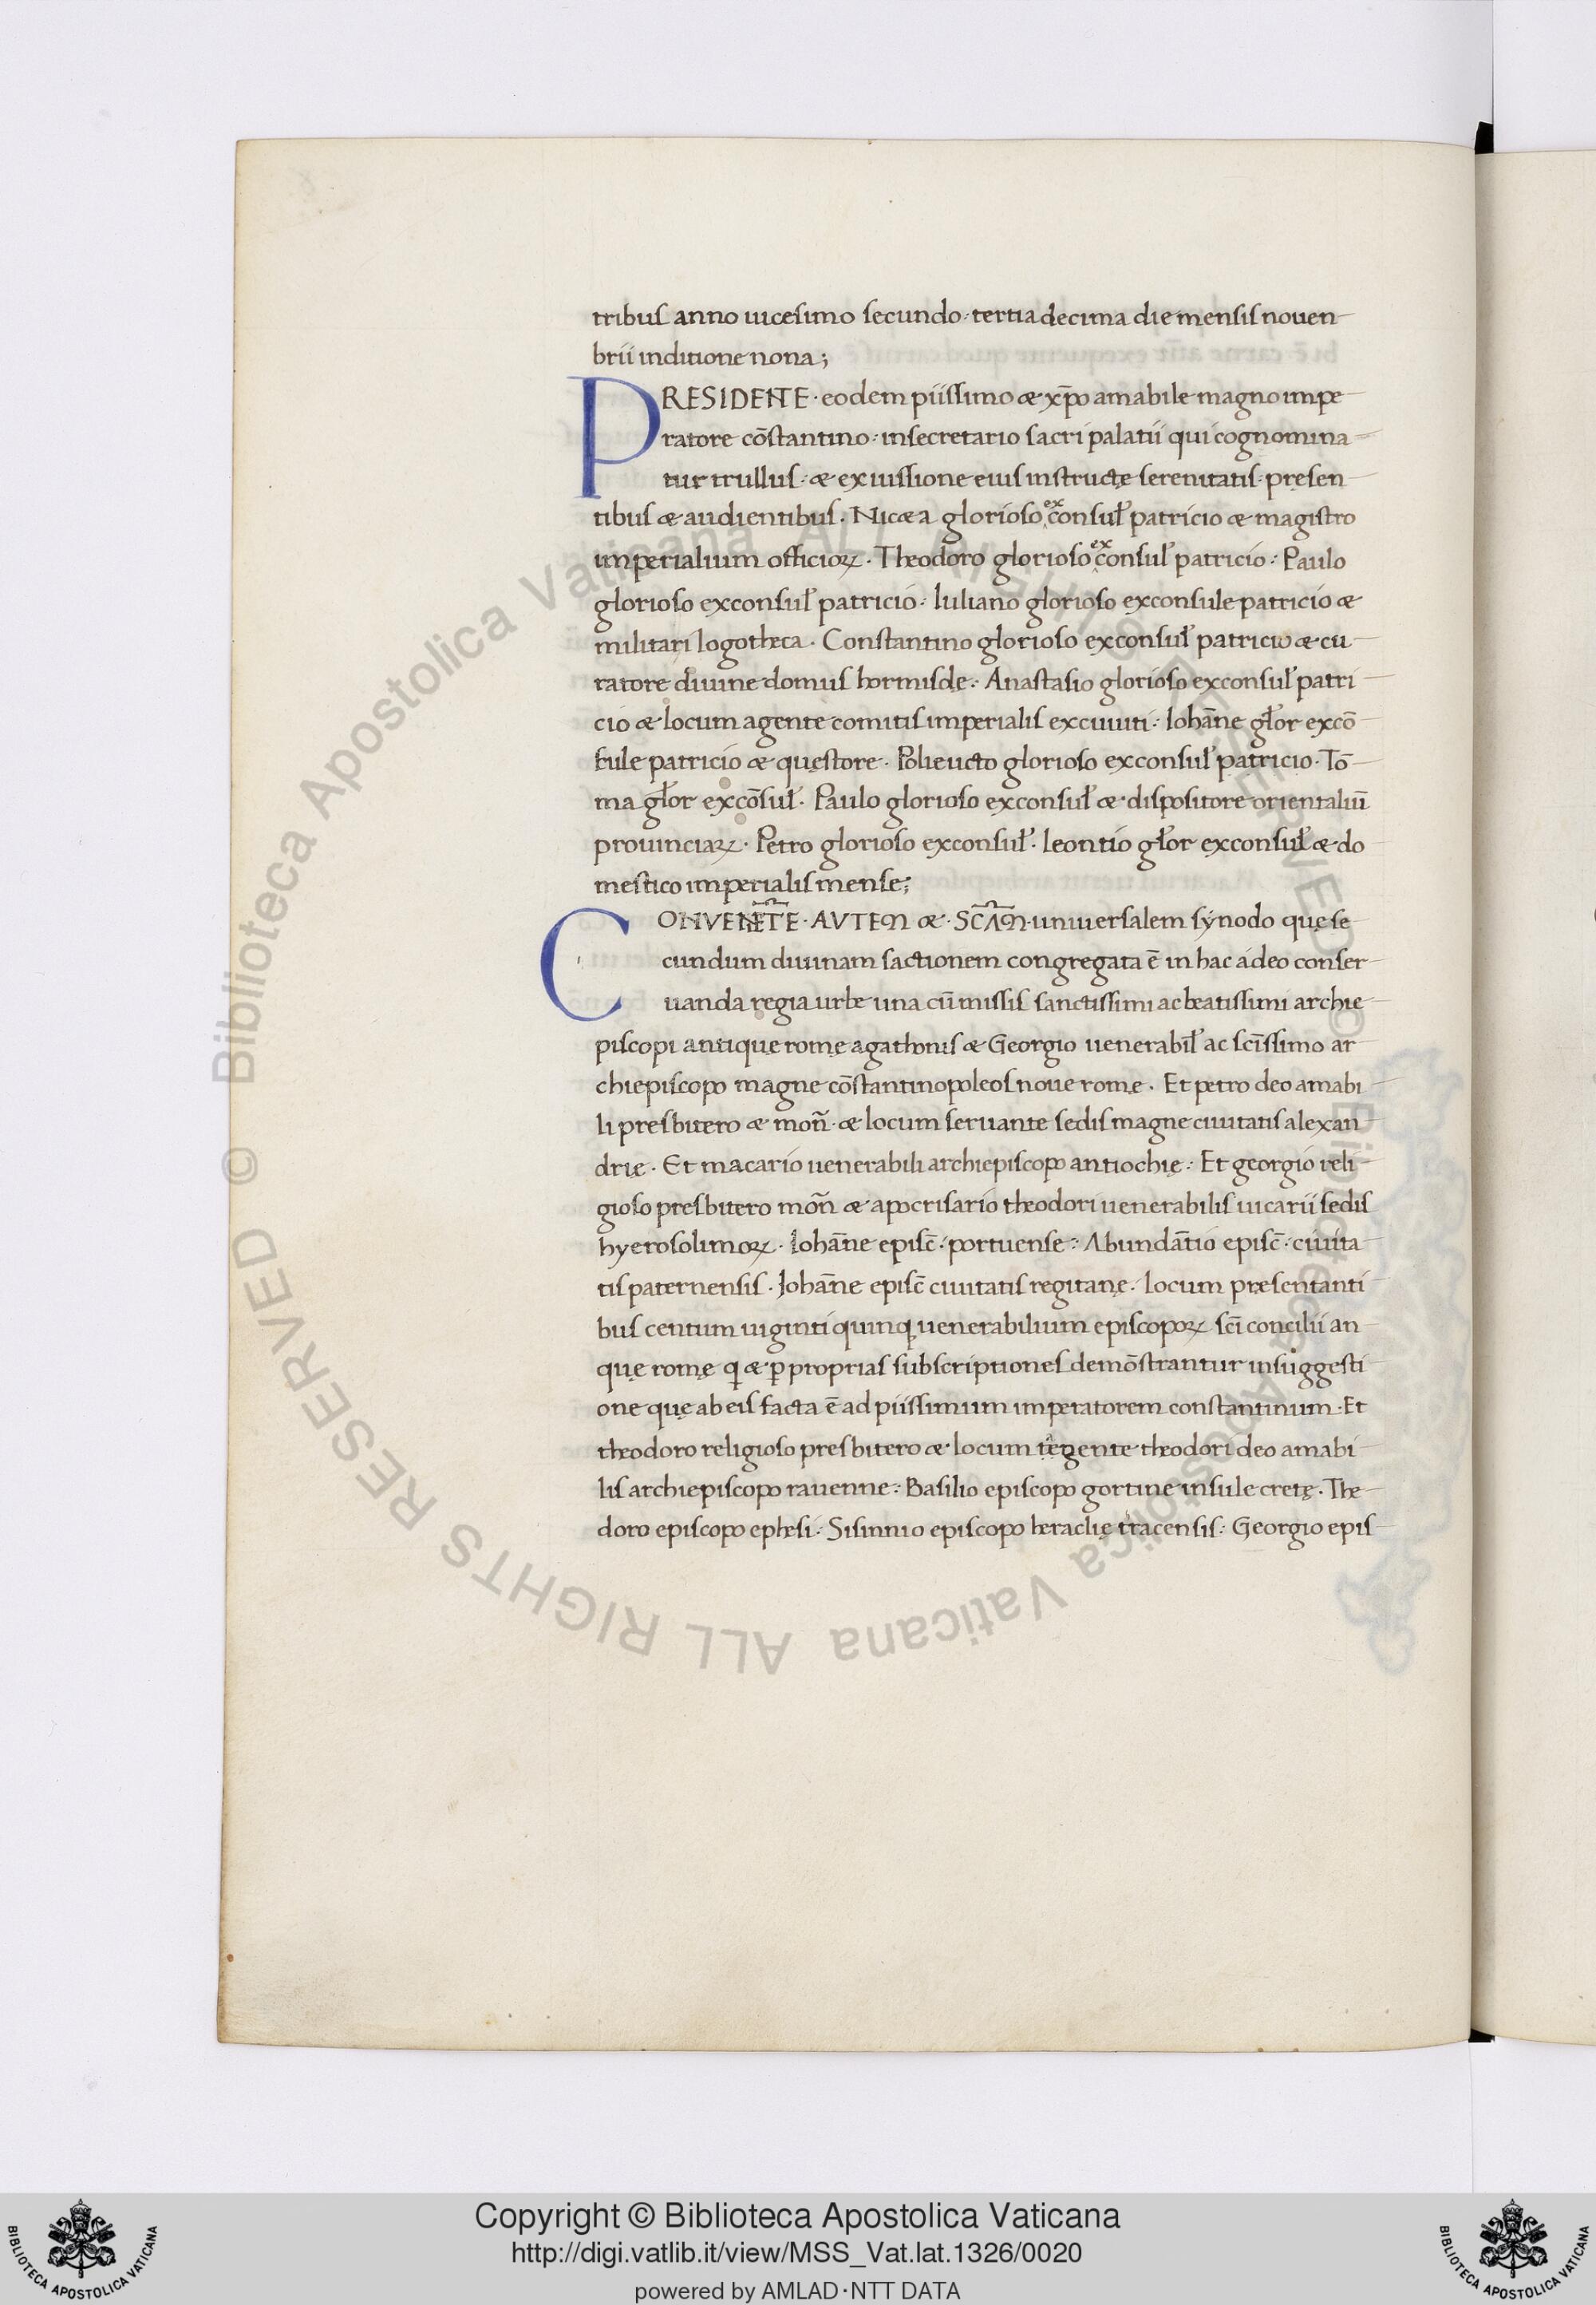 tribus anno uicesimo secundo · tertia decima die mensis nouen
brii inditione nona;
PRESIDENTE · eodem piissimo æ xp̄o amabile magno impe
ratore cōstantino : in secretario sacri palatii qui cognomina
tur trullus · æ ex iussione eius instructę serenitatis · pręsen
tibus æ audientibus. Nicæa glorioso ex consul' patricio æ magistro
imperialium officioꝝ · Theodoro glorioso ex consul' patricio : Paulo
glorioso exconsul' patricio : Iuliano glorioso exconsule patricio æ
militari logotheca · Constantino glorioso exconsul' patricio æ cu
ratore diuine domus hormisdę : Anastasio glorioso exconsul' patri
cio æ locum agente comitis imperialis excuuiti : Iohāne gl'or excō
sule patricio æ quęstore · Polieucto glorioso exconsul' patricio · Tō
ma gl'or excōsul' · Paulo glorioso exconsul' æ · dispositore orientaliū
prouinciaꝝ · Petro glorioso exconsul' · leontio gl'or exconsul' æ do
mestico imperialis mense;
CONVENIENTE · AVTEM æ · SCAM · uniuersalem synodo quę se
cundum diuinam sactionem congregata ē in hac a deo conser
uanda regia urbe una cū missis sanctissimi ac beatissimi archie
piscopi antiquę romę agathonis æ Georgio uenerabil' ac scīssimo ar
chiepiscopo magne cōstantinopoleos noue romę · Et petro deo amabi
li presbitero æ mon̄ · æ locum seruante sedis magne ciuitatis alexan
drię · Et macario uenerabili archiepiscopo antiochię : Et georgio reli
gioso presbitero mon̄ æ apocrisario theodori uenerabilis uicarii sedis
hyerosolimoꝝ · Iohāne episc̄ · portuense : Abundātio episc̄ · ciuita
tis paternensis · Iohāne episc̄ ciuitatis regitanę · locum præsentanti
bus centum uiginti quinq; uenerabilium episcopoꝝ scī concilii an
quę romę ꝗ æ ꝑ proprias subscriptiones demōstrantur in suggesti
one quę ab eis facta ē ad piissimum imperatorem constantinum · Et
theodoro religioso presbitero æ · locum tegente theodori deo amabi
lis archiepiscopo rauenne : Basilio episcopo gortine insule cretę · The
doro episcopo ephesi : Sisinnio episcopo heraclię tracensis : Georgio epis
© Biblioteca Apostolica Vaticana ALL RIGHTS RESERVED
© Biblioteca Apostolica Vaticana ALL RIGHTS RESERVED
Copyright © Biblioteca Apostolica Vaticana
http://digi.vatlib.it/view/MSS_Vat.lat.1326/0020
powered by AMLAD·NTT DATA
BIBLIOTECA APOSTOLICA VATICANA
BIBLIOTECA APOSTOLICA VATICANA